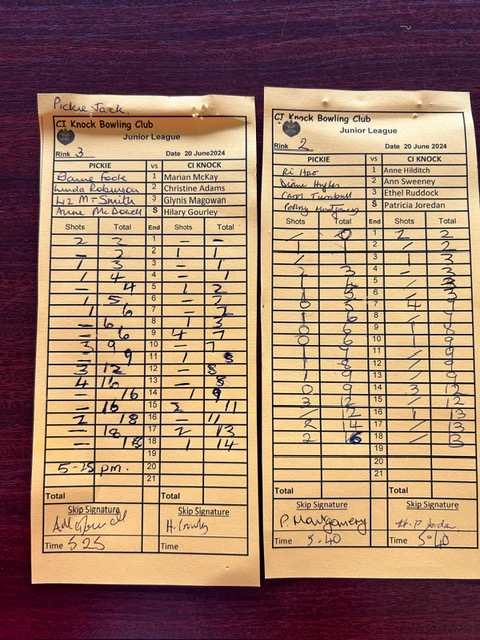 Pickie Jack.
CI Knock Bowling Club
Junior League
Rink 3 Date 20 June2024
PICKIE vs CI KNOCK
Elaine Foote 1 Marian McKay
Linda Robinson 2 Christine Adams
Liz M-Smith 3 Glynis Magowan
Anne McDowell S Hilary Gourley
Shots Total End Shots Total
2 2 1 - -
- 2 2 1 1
1 3 3 - 1
1 4 4 - 1
- 4 5 1 2
1 5 6 - 2
1 6 7 - 2
- 6 8 1 3
- 6 9 4 7
3 9 10 - 7
- 9 11 1 8
3 12 12 - 8
4 16 13 - 8
- 16 14 1 9
- 16 15 2 11
2 18 16 - 11
- 18 17 2 13
- 18 18 1 14
19
5-15 pm. 20
21
Total Total
Skip Signature Skip Signature
H. Gourley
Time 5 25 Time
CI Knock Bowling Club
Junior League
Rink 2 Date 20 June 2024
PICKIE vs CI KNOCK
Ri Hao 1 Anne Hilditch
Diane 2 Ann Sweeney
Turnbull 3 Ethel Ruddock
Penny Montgomery S Patricia Joredan
Shots Total End Shots Total
/ 0 1 2 2
1 1 2 / 2
/ 1 3 1 3
2 3 4 - 3
1 4 5 / 3
1 5 6 / 3
0 5 7 4 7
1 6 8 / 7
0 6 9 1 8
0 6 10 1 9
1 7 11 / 9
1 8 12 / 9
1 9 13 / 9
0 9 14 3 12
3 12 15 / 12
/ 12 16 1 13
2 14 17 / 13
2 16 18 / 13
19
20
21
Total Total
Skip Signature Skip Signature
P. Montgomery
Time 5.40 Time 5.40